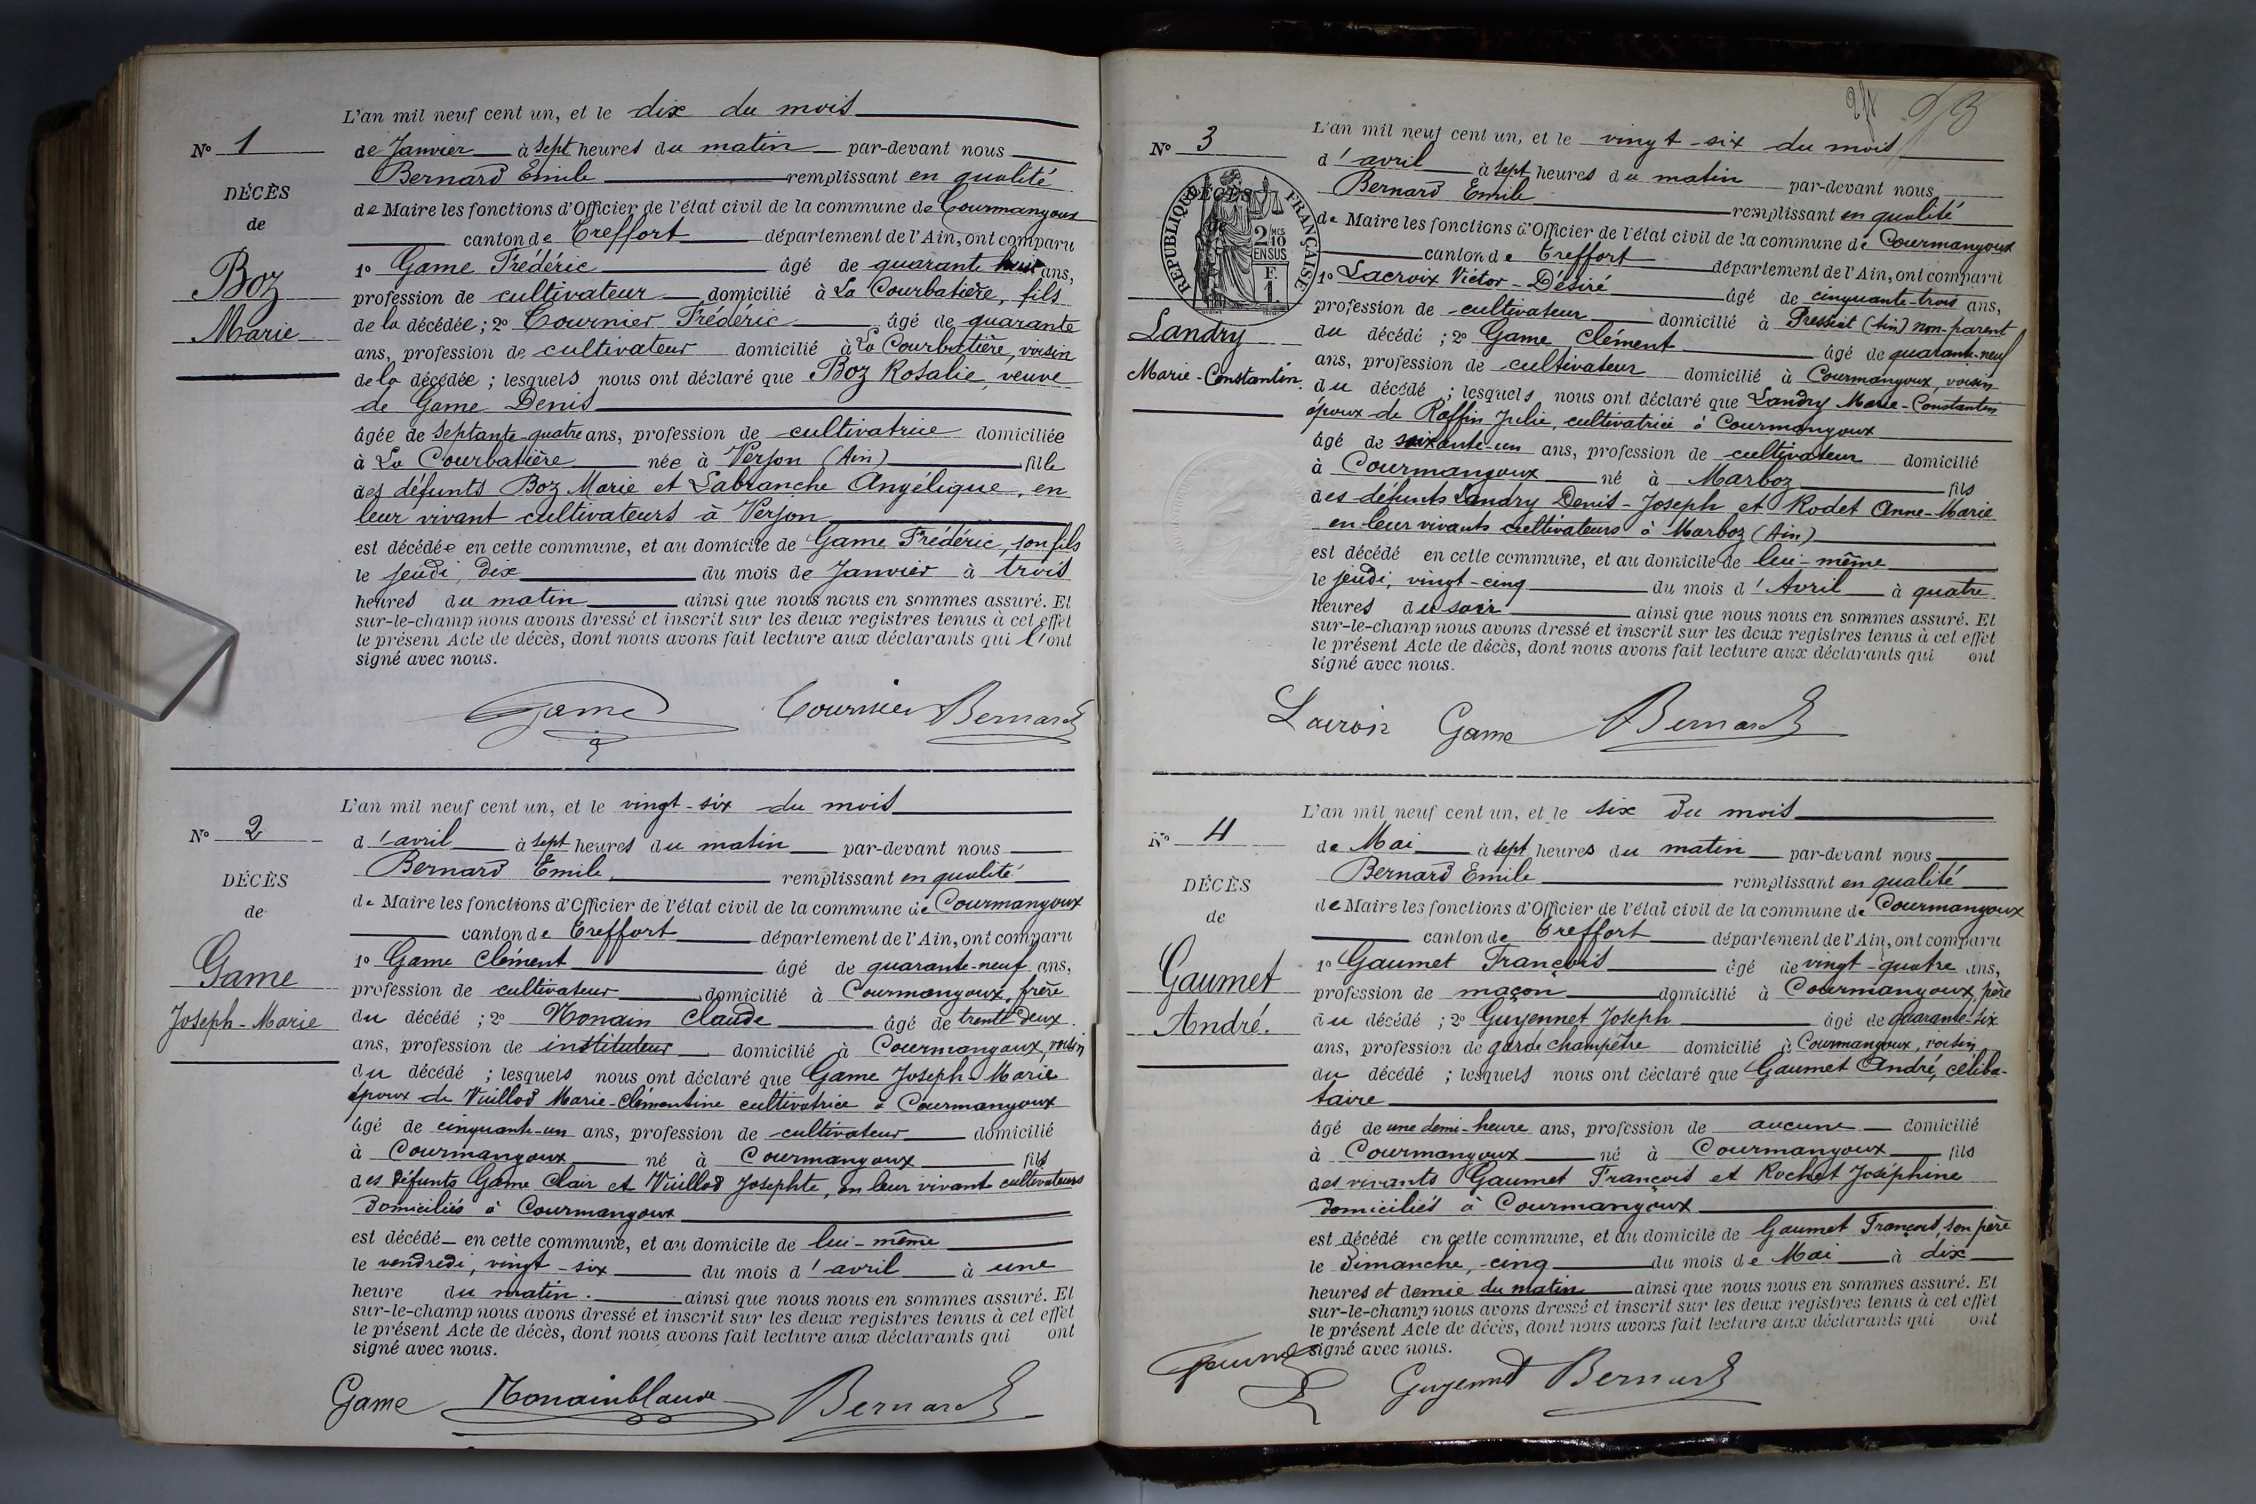 L'an mil neuf cent un, et le dix du mois
N° 1
de Janvier à sept heures du matin par-devant nous
Bernard Emile remplissant en qualité
DÉCÈS
de Maire les fonctions d'Officier de l'état civil de la commune de Courmangoux
de
canton de Treffort département de l'Ain, ont comparu
Boz
1° Game Frédéric âgé de quarante huit ans,
profession de cultivateur domicilié à La Courbatière, fils
Marie
de la décédée ; 2° Tournier Frédéric âgé de quarante
ans, profession de cultivateur domicilié à La Courbatière, voisin
de la décédée ; lesquels nous ont déclaré que Boz Rosalie, veuve
de Game Denis
âgée de septante-quatre ans, profession de cultivatrice domiciliée
à La Courbatière née à Verjon (Ain) fille
des défunts Boz Marie et Labranche Angélique, en
leur vivant cultivateurs à Verjon
est décédée en cette commune, et au domicile de Game Frédéric, son fils
le jeudi, dix du mois de Janvier à trois
heures du matin ainsi que nous nous en sommes assuré. Et
sur-le-champ nous avons dressé et inscrit sur les deux registres tenus à cet effet
le présent Acte de décès, dont nous avons fait lecture aux déclarants qui l'ont
signé avec nous.
Game Tournier Bernard
L'an mil neuf cent un, et le vingt-six du mois
N° 2
d'avril à sept heures du matin par-devant nous
Bernard Emile, remplissant en qualité
DÉCÈS
de Maire les fonctions d'Officier de l'état civil de la commune de Courmangoux
de
canton de Treffort département de l'Ain, ont comparu
Game
1° Game Clément âgé de quarante-neuf ans,
profession de cultivateur domicilié à Courmangoux, frère
Joseph-Marie
du décédé ; 2° Monain Claude âgé de trente deux
ans, profession de instituteur domicilié à Courmangoux, voisin
du décédé ; lesquels nous ont déclaré que Game Joseph-Marie
époux de Vuillod Marie-Clémentine cultivatrice à Courmangoux
âgé de cinquante-un ans, profession de cultivateur domicilié
à Courmangoux né à Courmangoux fils
des défunts Game Clair et Vuillod Josephte, en leur vivant cultivateurs
domiciliés à Courmangoux
est décédé en cette commune, et au domicile de lui-même
le vendredi, vingt-six du mois d'avril à une
heure du matin. ainsi que nous nous en sommes assuré. Et
sur-le-champ nous avons dressé et inscrit sur les deux registres tenus à cet effet
le présent Acte de décès, dont nous avons fait lecture aux déclarants qui ont
signé avec nous.
Game Monain Claude Bernard
L'an mil neuf cent un, et le vingt-six du mois
N° 3
d'avril à sept heures du matin par-devant nous
Bernard Emile remplissant en qualité
RÉPUBLIQUE FRANÇAISE
DÉCÈS
de
2/10 EN SUS
F. 1.
de Maire les fonctions d'Officier de l'état civil de la commune de Courmangoux
canton de Treffort département de l'Ain, ont comparu
1° Lacroix Victor-Désiré âgé de cinquante-trois ans,
profession de cultivateur domicilié à Pressiat (Ain) non-parent
Landry
du décédé ; 2° Game Clément âgé de quarante-neuf
ans, profession de cultivateur domicilié à Courmangoux, voisin
Marie-Constantin.
du décédé ; lesquels nous ont déclaré que Landry Marie-Constantin
époux de Roffin Julie, cultivatrice à Courmangoux
âgé de soixante-un ans, profession de cultivateur domicilié
à Courmangoux né à Marboz fils
des défunts Landry Denis-Joseph et Rodet Anne-Marie
en leur vivants cultivateurs à Marboz (Ain)
est décédé en cette commune, et au domicile de lui-même
le jeudi, vingt-cinq du mois d'Avril à quatre
heures du soir ainsi que nous nous en sommes assuré. Et
sur-le-champ nous avons dressé et inscrit sur les deux registres tenus à cet effet
le présent Acte de décès, dont nous avons fait lecture aux déclarants qui ont
signé avec nous.
Lacroix Game Bernard
L'an mil neuf cent un, et le six du mois
N° 4
de Mai à sept heures du matin par-devant nous
Bernard Emile remplissant en qualité
DÉCÈS
de Maire les fonctions d'Officier de l'état civil de la commune de Courmangoux
de
canton de Treffort département de l'Ain, ont comparu
Gaumet
1° Gaumet François âgé de vingt-quatre ans,
profession de maçon domicilié à Courmangoux, père
André.
du décédé ; 2° Guyennet Joseph âgé de quarante-six
ans, profession de garde champêtre domicilié à Courmangoux, voisin
du décédé ; lesquels nous ont déclaré que Gaumet André, céliba-
taire
âgé de une demi-heure ans, profession de aucune domicilié
à Courmangoux né à Courmangoux fils
des vivants Gaumet François et Rochet Joséphine
domiciliés à Courmangoux
est décédé en cette commune, et au domicile de Gaumet François, son père
le dimanche, cinq du mois de Mai à dix
heures et demie du matin ainsi que nous nous en sommes assuré. Et
sur-le-champ nous avons dressé et inscrit sur les deux registres tenus à cet effet
le présent Acte de décès, dont nous avons fait lecture aux déclarants qui ont
signé avec nous.
Gaumet Guyennet Bernard